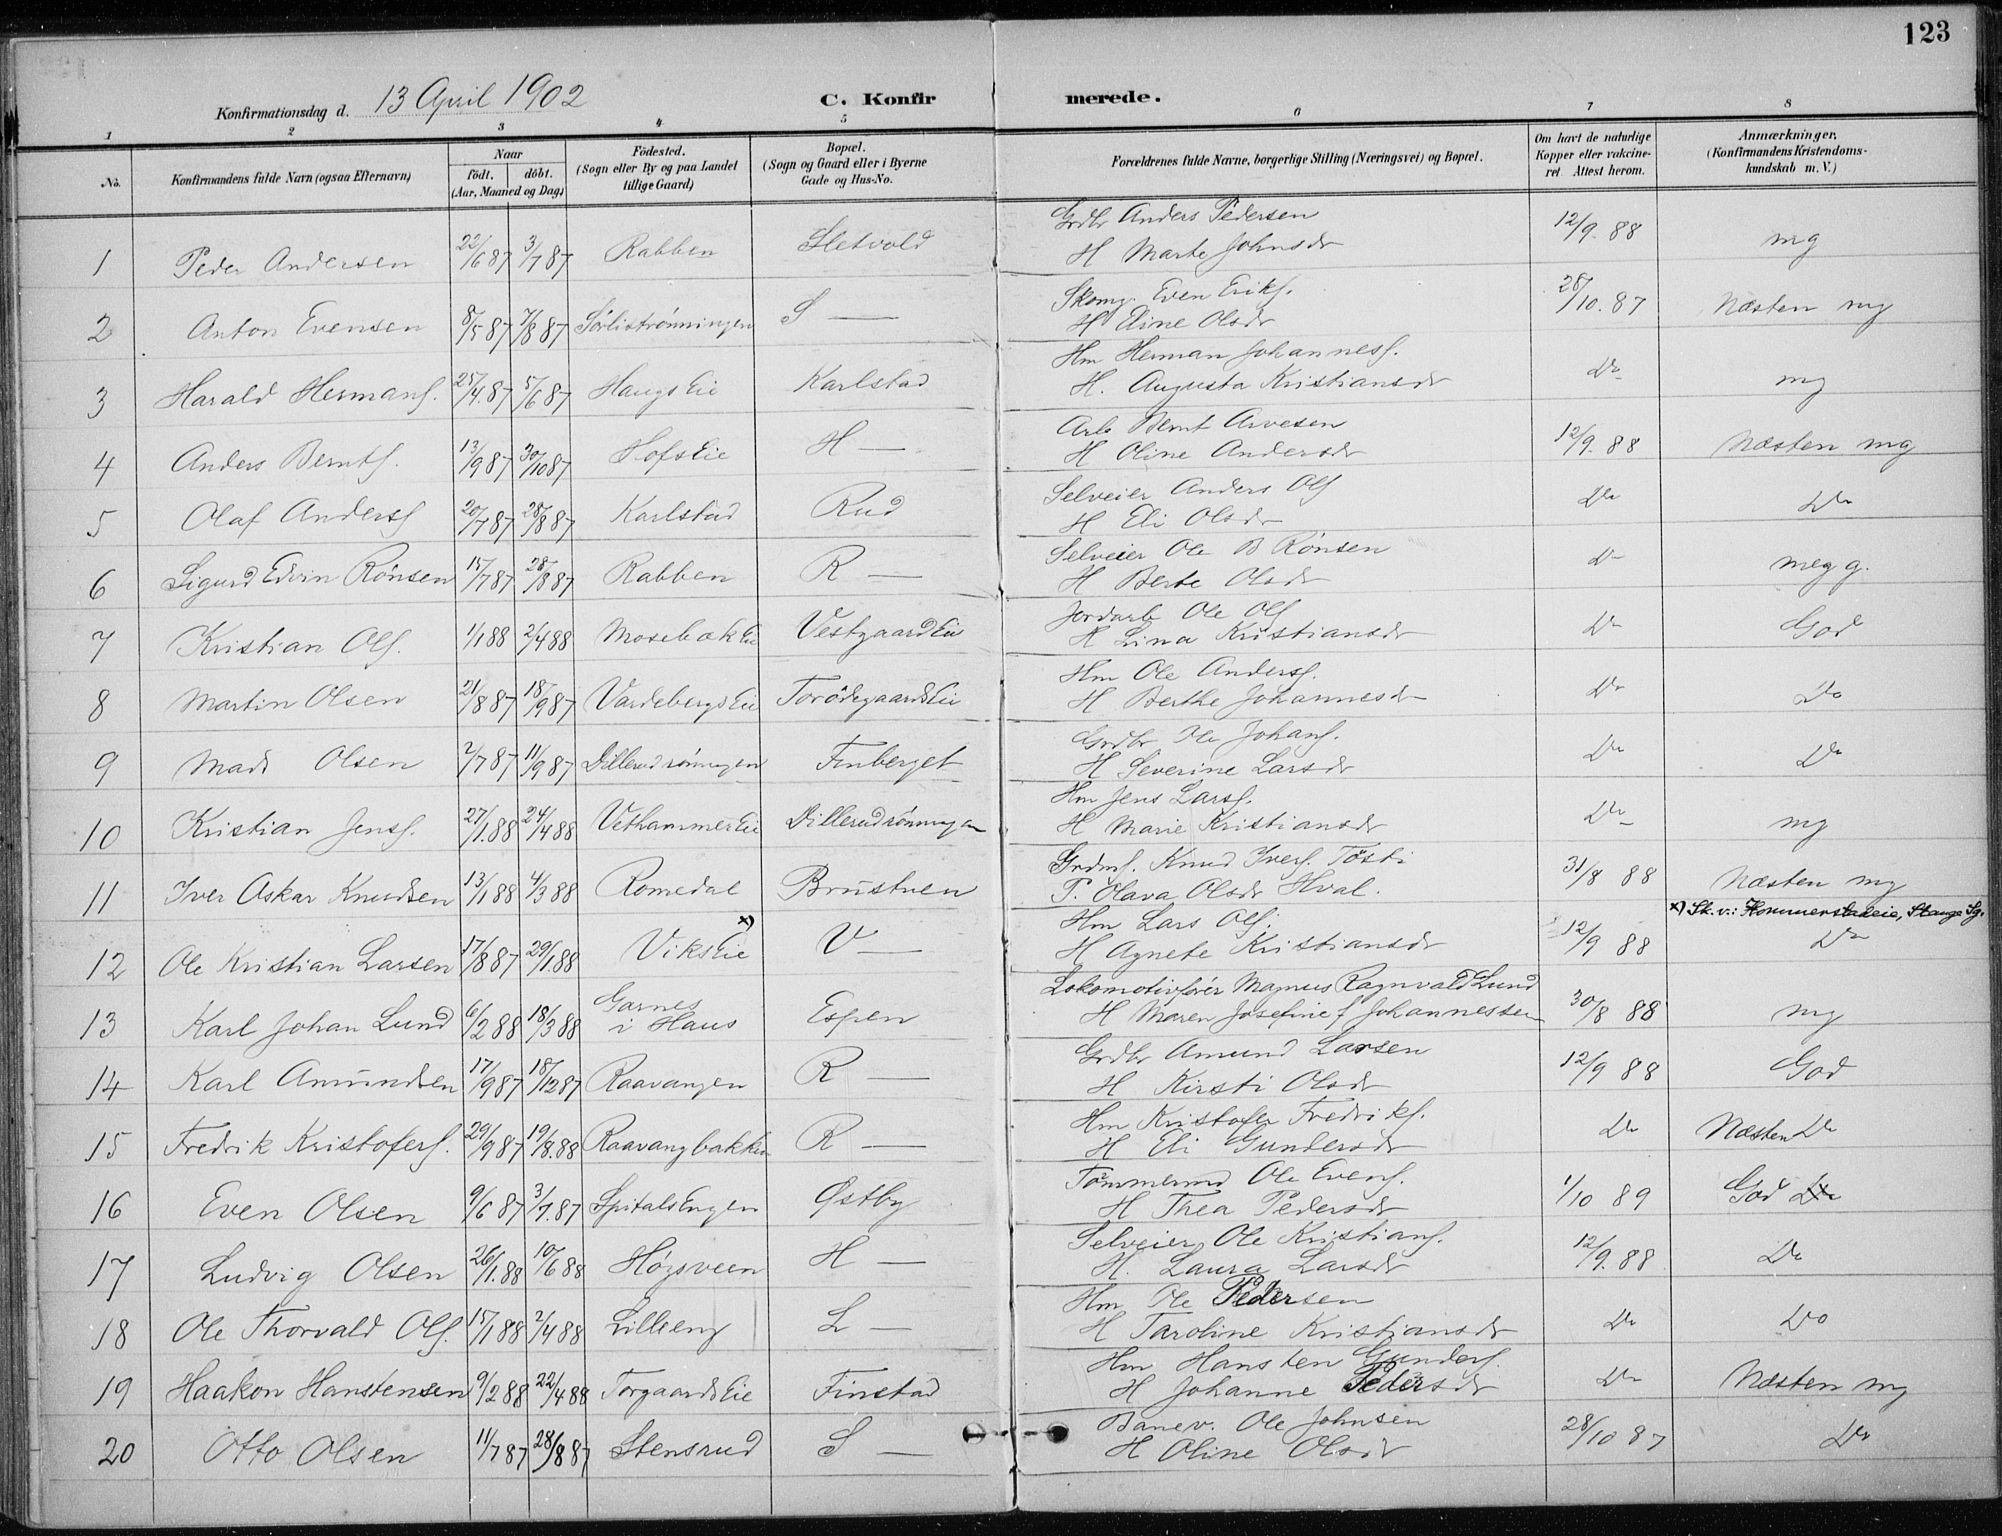 123
Konfirmationsdag d. 13 April 1902 C. Konfir merede.
1 2 3 4 5 6 7 8
No. Konfirmandens fulde Navn (ogsaa Efternavn) Naar født. døbt. (Aar, Maaned og Dag) Födested. (Sogn eller By og paa Landet tillige Gaard) Bopæl. (Sogn og Gaard eller i Byerne Gade og Hus-No. Forældrenes fulde Navne, borgerlige Stilling (Næringsvei) og Bopæl. Om havt de naturlige Kopper eller vakcineret. Attest herom. Anmærkninger. (Konfirmandens Kristendomskundskab m. V.)
1 Peder Andersen 22/6 87 3/7 87 Rabben Sletvold Grdbr Anders Pedersen
H Marte Johnsdr 12/9. 88 mg
2 Anton Evensen 8/5 87 7/8 87 Sørlistrønningen S — Skomg. Even Eriks.
H Eline Olsdr 28/10. 87 Næsten mg
3 Harald Hermans. 25/4. 87 5/6 87 Haugs Eie Karlstad Hm Herman Johannes.
H. Augusta Kristiansdr Do mg
4 Anders Bernts. 13/9 87 30/10 87 Hofs Eie H — Arb Bernt Arvesen
H Oline Andersdr 12/9. 88 Næsten mg
5 Olaf Anders 20/7 87 28/8 87 Karlstad Rud Selveier Anders Ols
H Eli Olsdr Do Do
6 Sigurd Edvin Rönsen 15/7 87 28/8 87 Rabben R — Selveier Ole B Rönsen
H Berte Olsdr Do meg g.
7 Kristian Ols. 1/1 88 2/4 88 Mosebæk Eie Vestgaard Eie Jordarb Ole Ols
H Lina Kristiansdr Do God
8 Martin Olsen 21/8 87 18/9 87 Vardebergs Eie Torödegaards Eie Hm Ole Anders.
H Berthe Johannesdr Do Do
9 Mads Olsen 2/7 87 11/9 87 Dillerudrönningen Finberget Grdbr Ole Johans.
H Severine Larsdr Do Do
10 Kristian Jens. 27/1. 88 24/4 88 Vethammer Eie Dillerudrönningen Hm Jens Lars.
H Marie Kristiansdr Do mg
11 Iver Oskar Knudsen 13/1 88 4/3 88 Romedal Brustuen Grdms. Knud Ivers. Tösti
P. Olava Olsdr Hval. 31/8 88 Næsten mg
x) Sk. v.: Hommerstadeie, Stange Sg.
12 Ole Kristian Larsen 17/8 87 29/1. 88 Viks Eie x) V — Hm Lars Ols.
H Agnete Kristiansdr 12/9 88 Do
13 Karl Johan Lund 6/2 88 18/3 88 Garnes i Haus Espen Lokomotivförer Magnus Ragnvald Lund
H Maren Josefine f Johannessen 30/8 88 mg
14 Karl Amundsen 17/9 87 18/12 87 Raavangen R — Grdbr Amund Larsen
H Kirsti Olsdr 12/9 88 God
15 Fredrik Kristofers. 29/9 87 19/8. 88 Raavangbakken R — Hm Kristofer Fredriks.
H Eli Gundersdr Do Næsten Do
16 Even Olsen 9/6 87 3/7. 87 Spitals Engen Østby Tömmermd Ole Evens.
H Thea Pedersdr 1/10 89 God
17 Ludvig Olsen 26/1. 88 10/6 88 Høgsveen H — Selveier Ole Kristians.
H. Laura Larsdr 12/9. 88 Do
18 Ole Thorvald Ols. 15/1 88 2/4 88 Lilleeng L — Hm Ole Pedersen
H Taroline Kristiansdr Do Do
19 Haakon Hanstensen 9/2 88 22/4 88 Torgaards Eie Finstad Hm Hansten Gunders.
H Johanne Pedersdr Do Næsten mg
20 Otto Olsen 11/7 87 28/8 87 Stensrud S — Banev. Ole Johnsen
H Oline Olsdr 28/10 87 Do